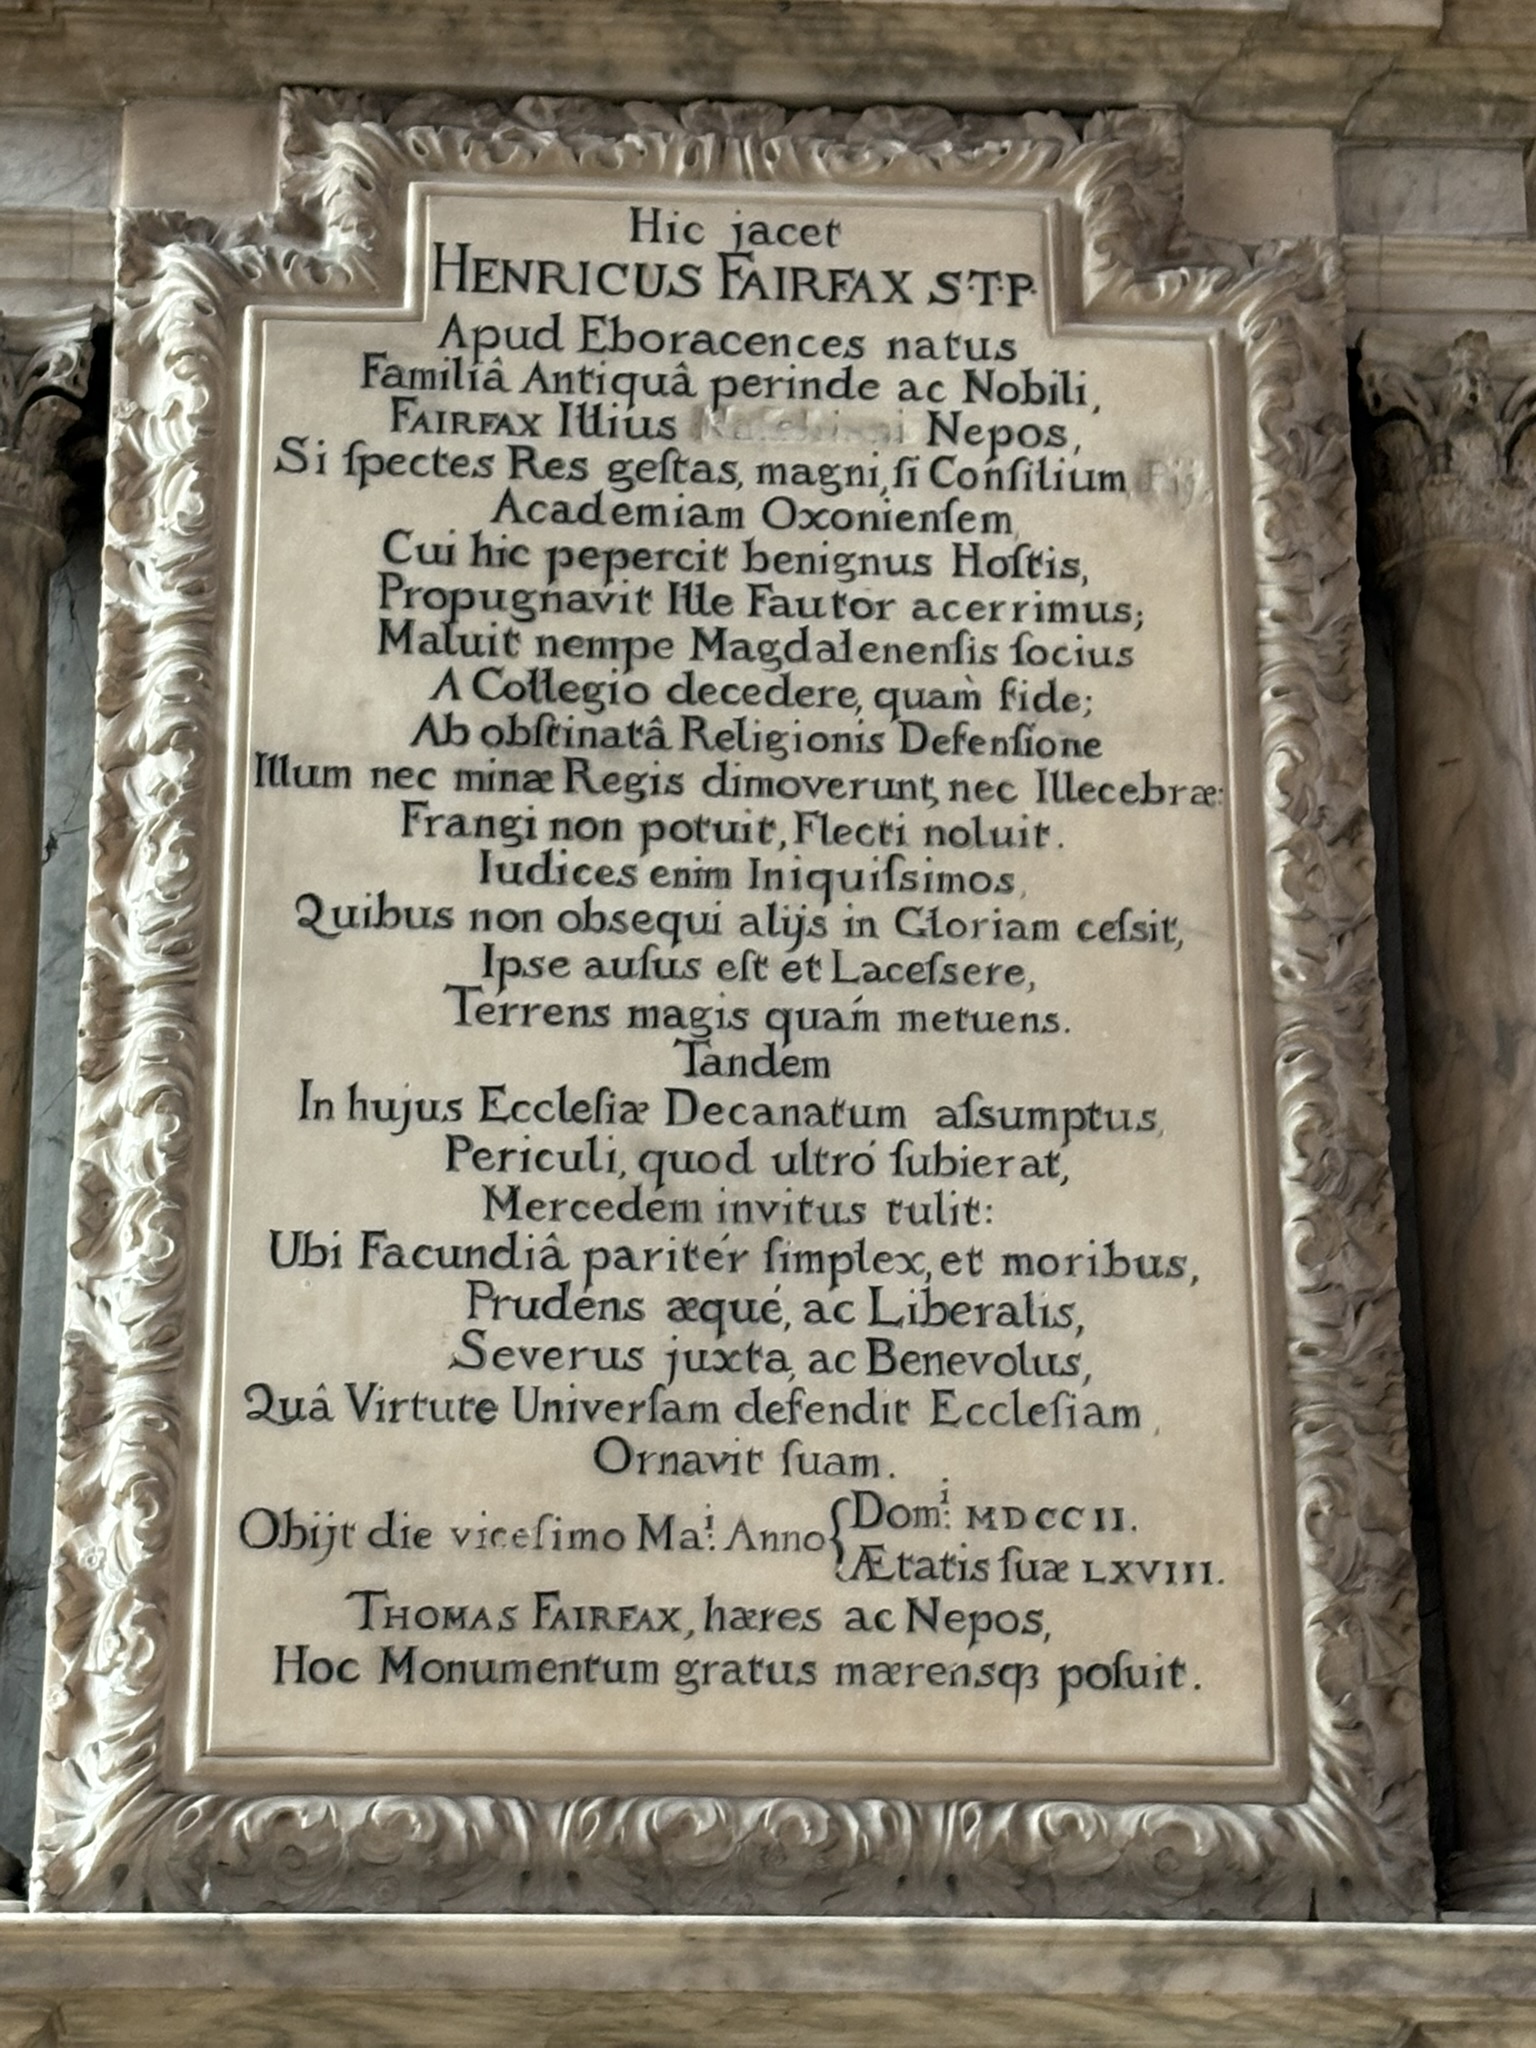 Hic jacet
HENRICUS FAIRFAX S.T.P.
Apud Eboracences natus
Familiâ Antiquâ perinde ac Nobili,
FAIRFAX Illius Nepos,
Si ſpectes Res geſtas, magni, ſi Conſilium
Academiam Oxonienſem,
Cui hic pepercit benignus Hoſtis,
Propugnavit Ille Fautor acerrimus;
Maluit nempe Magdalenenſis ſocius
A Collegio decedere, quam̀ fide;
Ab obſtinatâ Religionis Defenſione
Illum nec minæ Regis dimoverunt, nec Illecebræ:
Frangi non potuit, Flecti noluit.
Iudices enim Iniquiſsimos,
Quibus non obsequi alijs in Gloriam ceſsit,
Ipse auſus eſt et Laceſsere,
Terrens magis quaḿ metuens.
Tandém
In hujus Eccleſiæ Decanatum aſsumptus,
Periculi, quod ultró ſubierat,
Mercedém invitus tulit:
Ubi Facundiâ paritér ſimplex, et moribus,
Prudéns æqué, ac Liberalis,
Severus juxta, ac Benevolus,
Quâ Virtute Univerſam defendit Eccleſiam,
Ornavit ſuam.
Obijt die viceſimo Ma:i Anno { Dom:i MDCCII.
Ætatis ſuæ LXVIII.
THOMAS FAIRFAX, hæres ac Nepos,
Hoc Monumentum gratus mærensqꝫ poſuit.